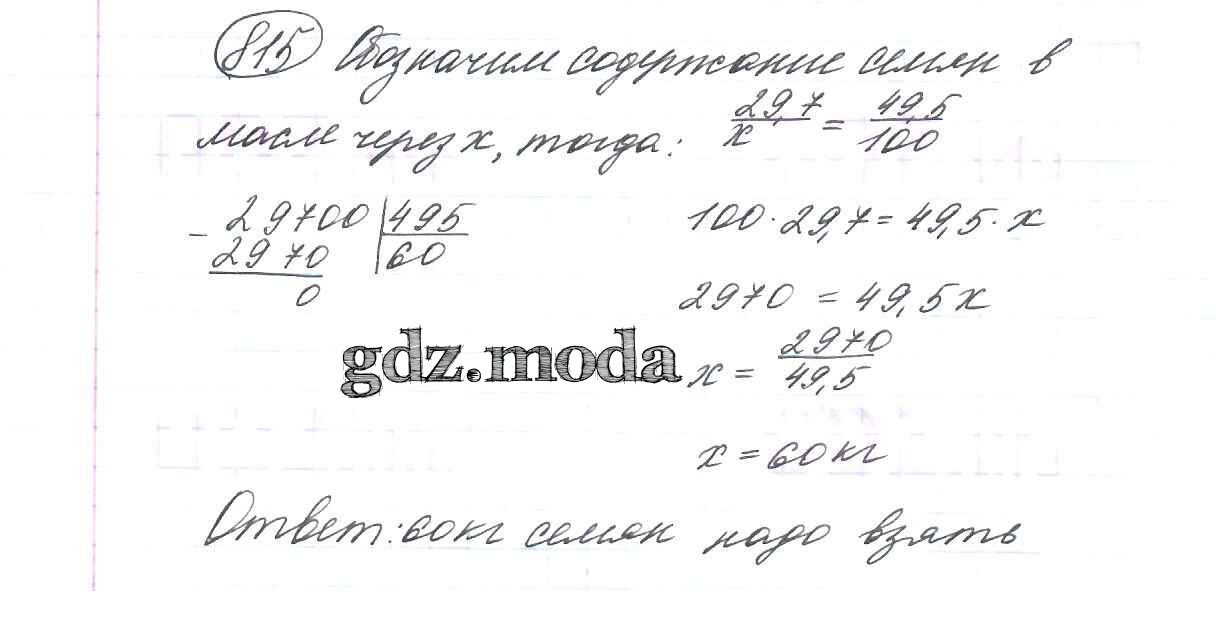 815 Обозначим содержание семян в
масле через x, тогда: 29,7/x = 49,5/100
100 · 29,7 = 49,5 · x
- 29700 | 495
2970 | 60
0
2970 = 49,5x
gdz.moda
x = 2970/49,5
x = 60 кг
Ответ: 60 кг семян надо взять